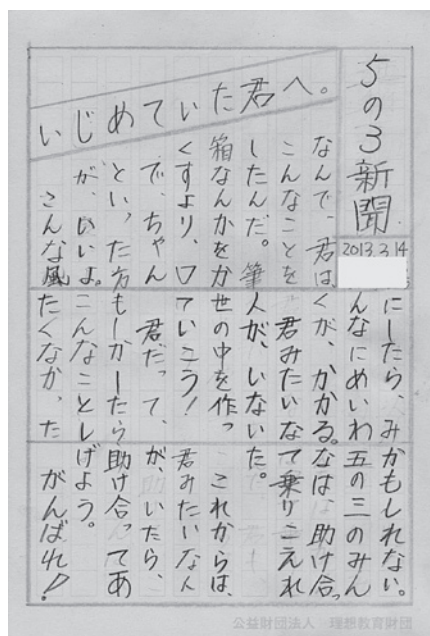 5の3新聞
2013.3.14
いじめていた君へ。
なんで、君は
こんなことを
したんだ。筆
箱なんかをか
くすより、口
で、ちゃん
といった方
が、いいよ。
こんな風
にしたら、み
んなにめいわ
くが、かかる。
君みたいな
人が、いない
世の中を作っ
ていこう!
君だって、
もしかしたら
こんなことし
たくなかった
かもしれない。
五の三のみん
なは、助け合っ
て乗りこえれ
た。
これからは、
君みたいな人
が、いたら、
助け合ってあ
げよう。
がんばれ!
公益財団法人 理想教育財団